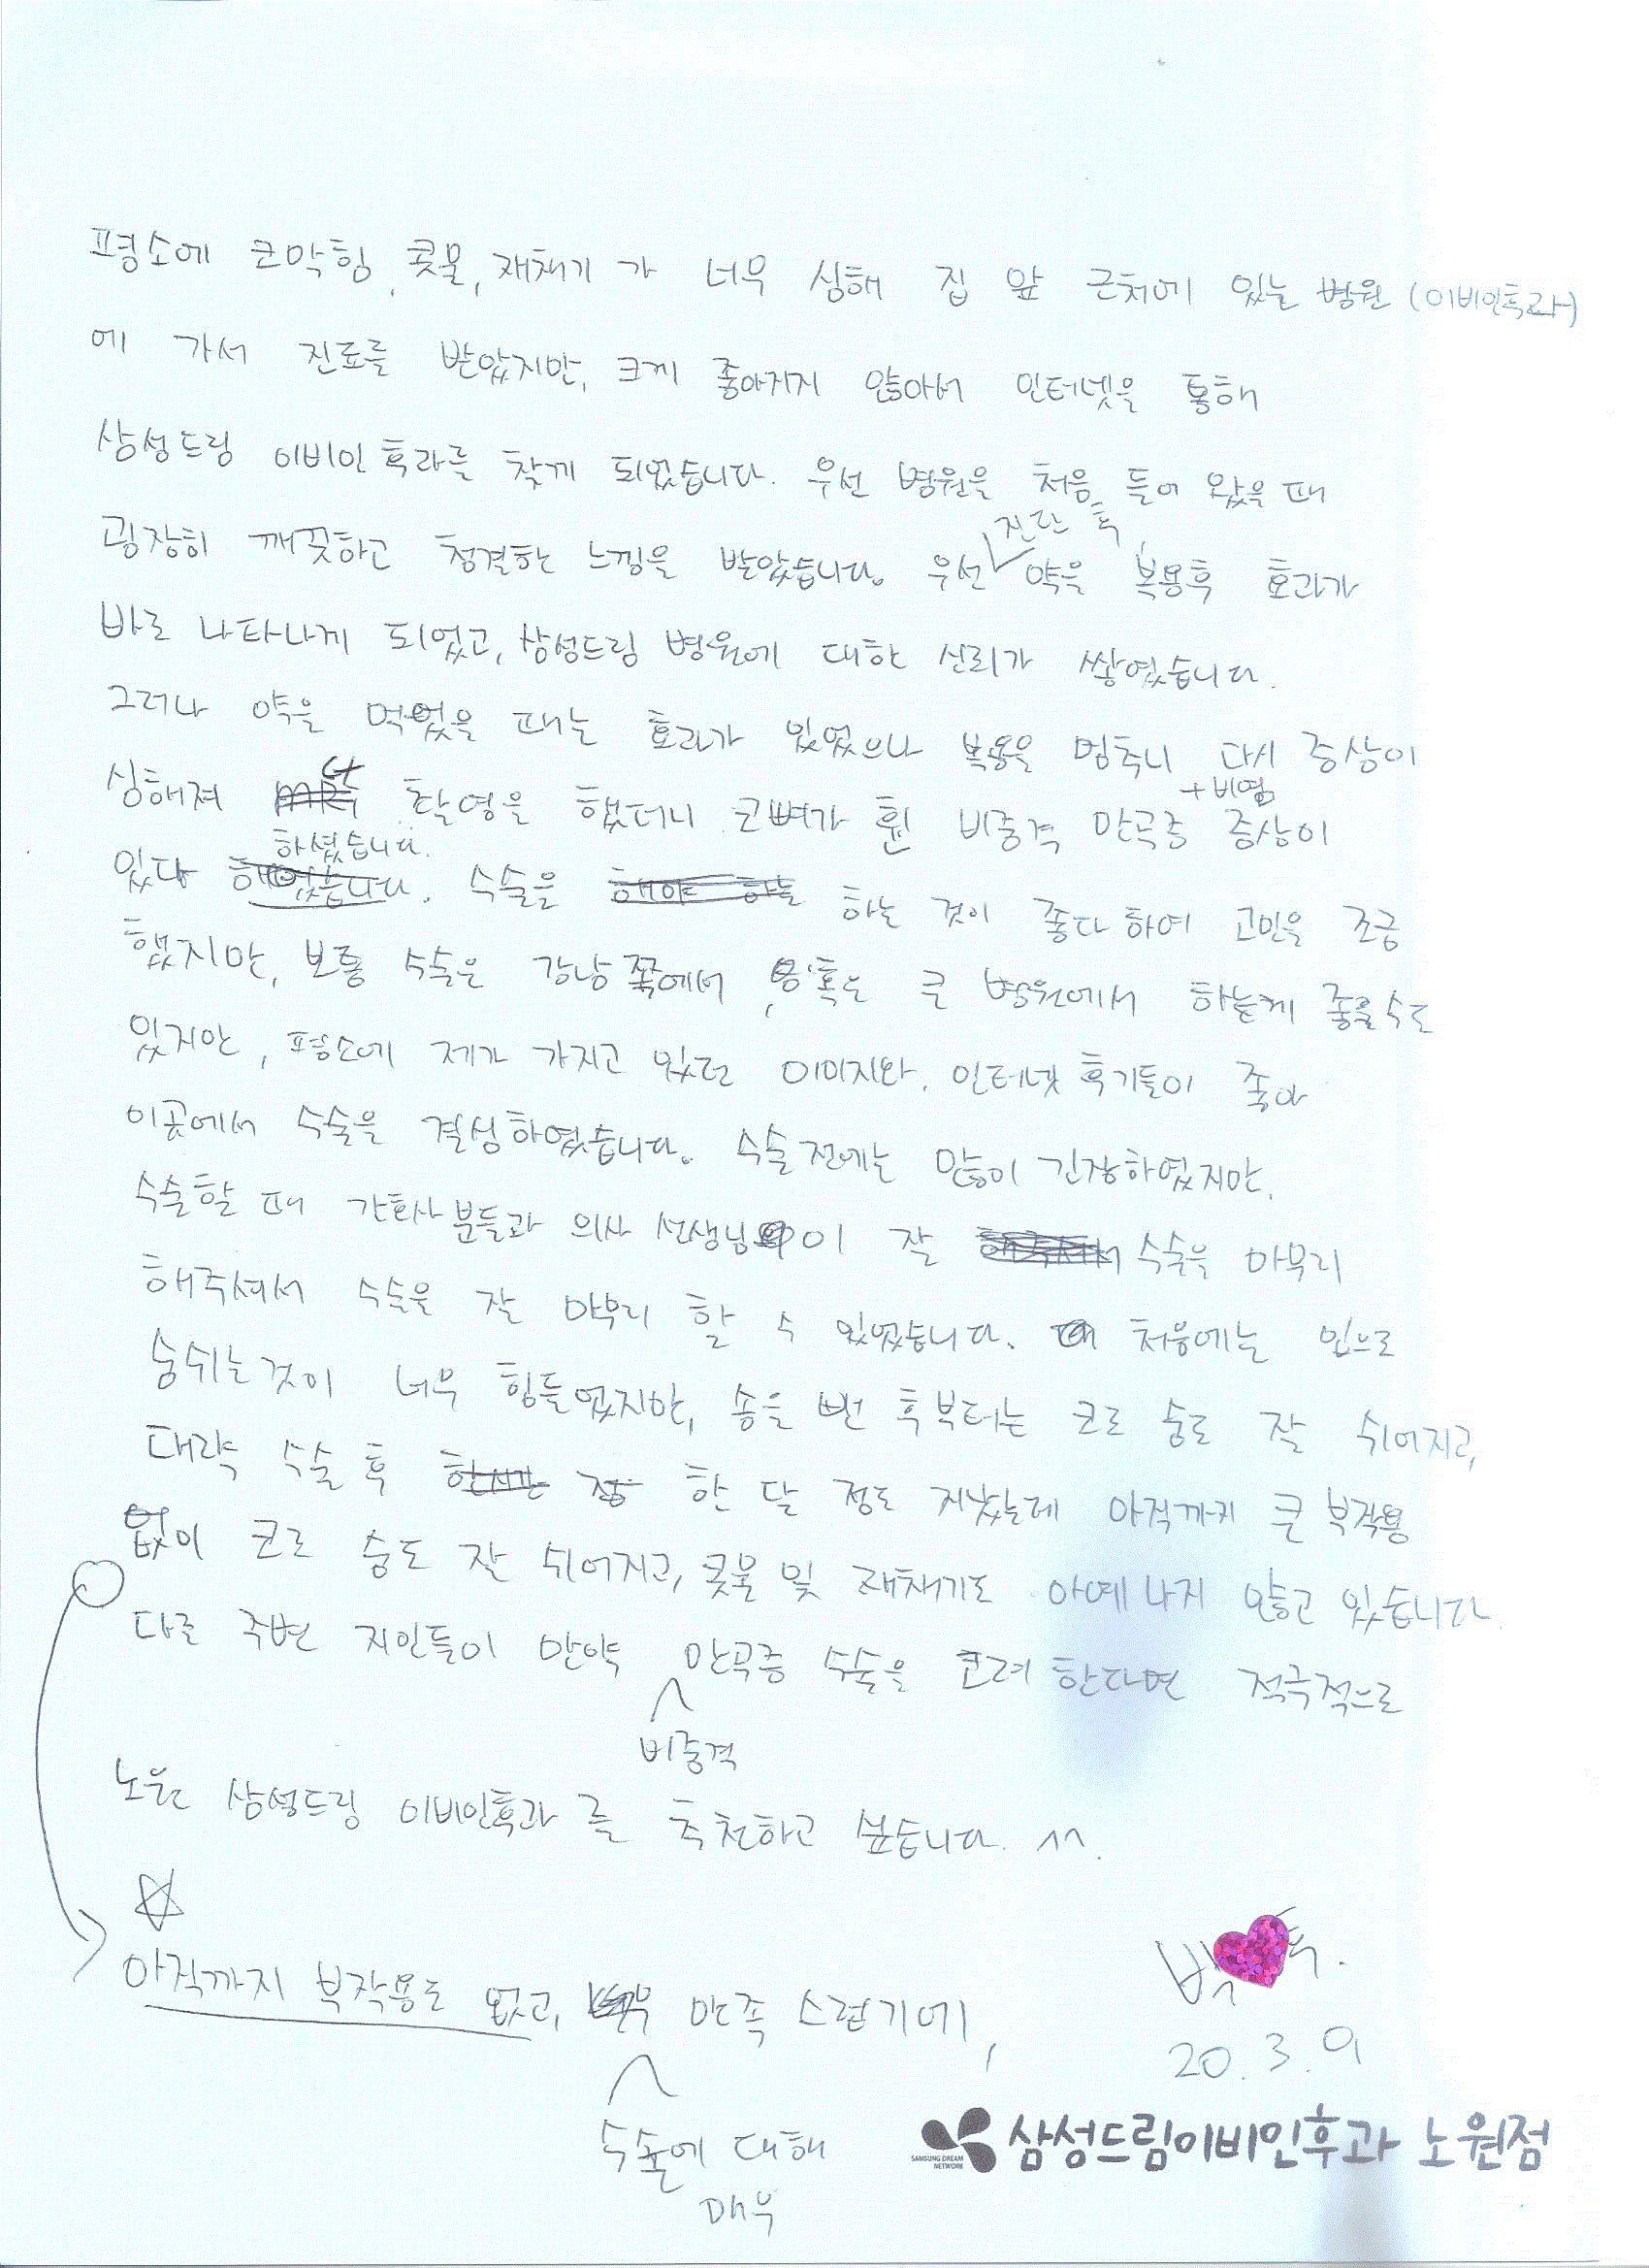 평소에 코막힘, 콧물, 재채기 가 너무 심해 집 앞 근처에 있는 병원 (이비인후과)
에 가서 진료를 받았지만, 크게 좋아지지 않아서 인터넷을 통해
삼성드림 이비인후과를 찾게 되었습니다. 우선 병원을 처음 들어 왔을 때
굉장히 깨끗하고 청결한 느낌을 받았습니다. 우선 진단 후, 약을 복용후 효과가
바로 나타나게 되었고, 삼성드림 병원에 대한 신뢰가 쌓였습니다.
그러나 약을 먹었을 때는 효과가 있었으나 복용을 멈추니 다시 증상이
심해져 CT 촬영을 했더니 코뼈가 휜 비중격 만곡증 +비염 증상이
있다 하셨습니다. 수술을 하는 것이 좋다 하여 고민을 조금
했지만, 보통 수술은 강남 쪽에서, 혹은 큰 병원에서 하는게 좋을수도
있지만, 평소에 제가 가지고 있던 이미지와, 인터넷 후기들이 좋아
이곳에서 수술을 결정하였습니다. 수술 전에는 많이 긴장하였지만,
수술할 때 간호사 분들과 의사 선생님이 잘 수술을 마무리
해주셔서 수술을 잘 마무리 할 수 있었습니다. 처음에는 입으로
숨쉬는것이 너무 힘들었지만, 솜을 뺀 후부터는 코로 숨도 잘 쉬어지고,
대략 수술 후 한 달 정도 지났는데 아직까지 큰 부작용
없이 코로 숨도 잘 쉬어지고, 콧물 및 재채기도 아예 나지 않고 있습니다.
다른 주변 지인들이 만약 비중격 만곡증 수술을 고려 한다면 적극적으로
노원 삼성드림 이비인후과 를 추천하고 싶습니다. ^^.
☆
아직까지 부작용도 없고, 수술에 대해 매우 만족 스럽기에,
박
20. 3. 9
SAMSUNG DREAM NETWORK
삼성드림이비인후과 노원점